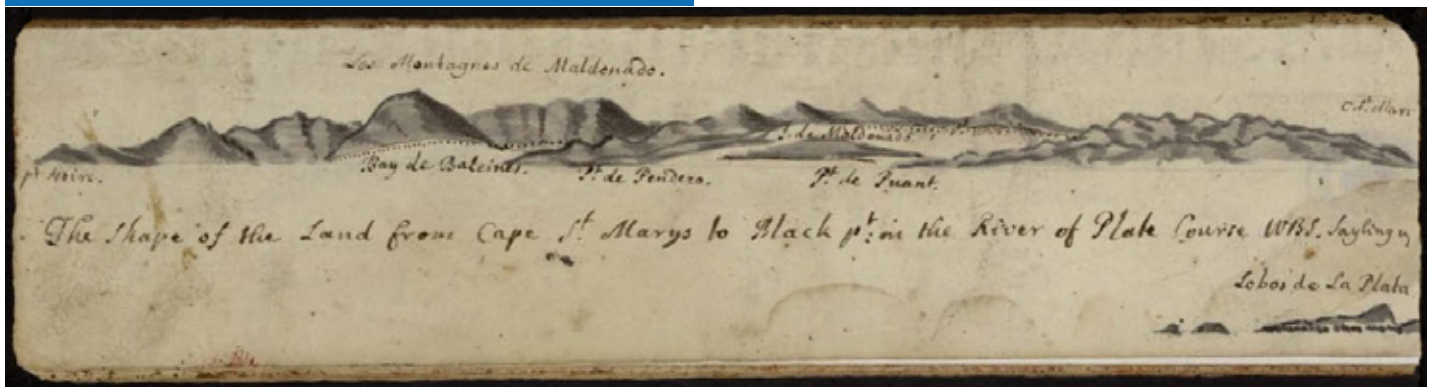 Les Montagnes de Maldonado.
C. St. Mary
I. de Maldonado.
pt. Noire.
Bay de Baleines.
Pt. de Pendero.
Pt. de Puant.
The Shape of the Land from Cape St. Marys to Black pt. in the River of Plate Course WBS. Sayling
Lobos de La Plata